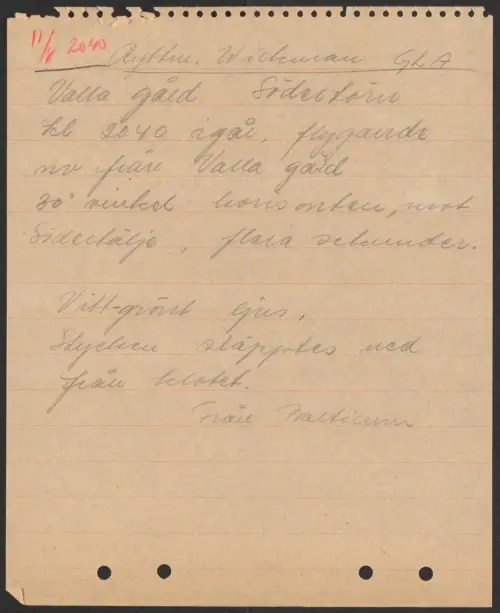 11/8 2040
Ryttm. Wickman GLA
Valla gård Södertörn
kl 2040 igår, flygande
nv från Valla gård
30° vinkel horisonten, mot
Södertälje, flera sekunder.
Vitt-grönt ljus,
Stycken släpptes ned
från klotet.
Från Balticum